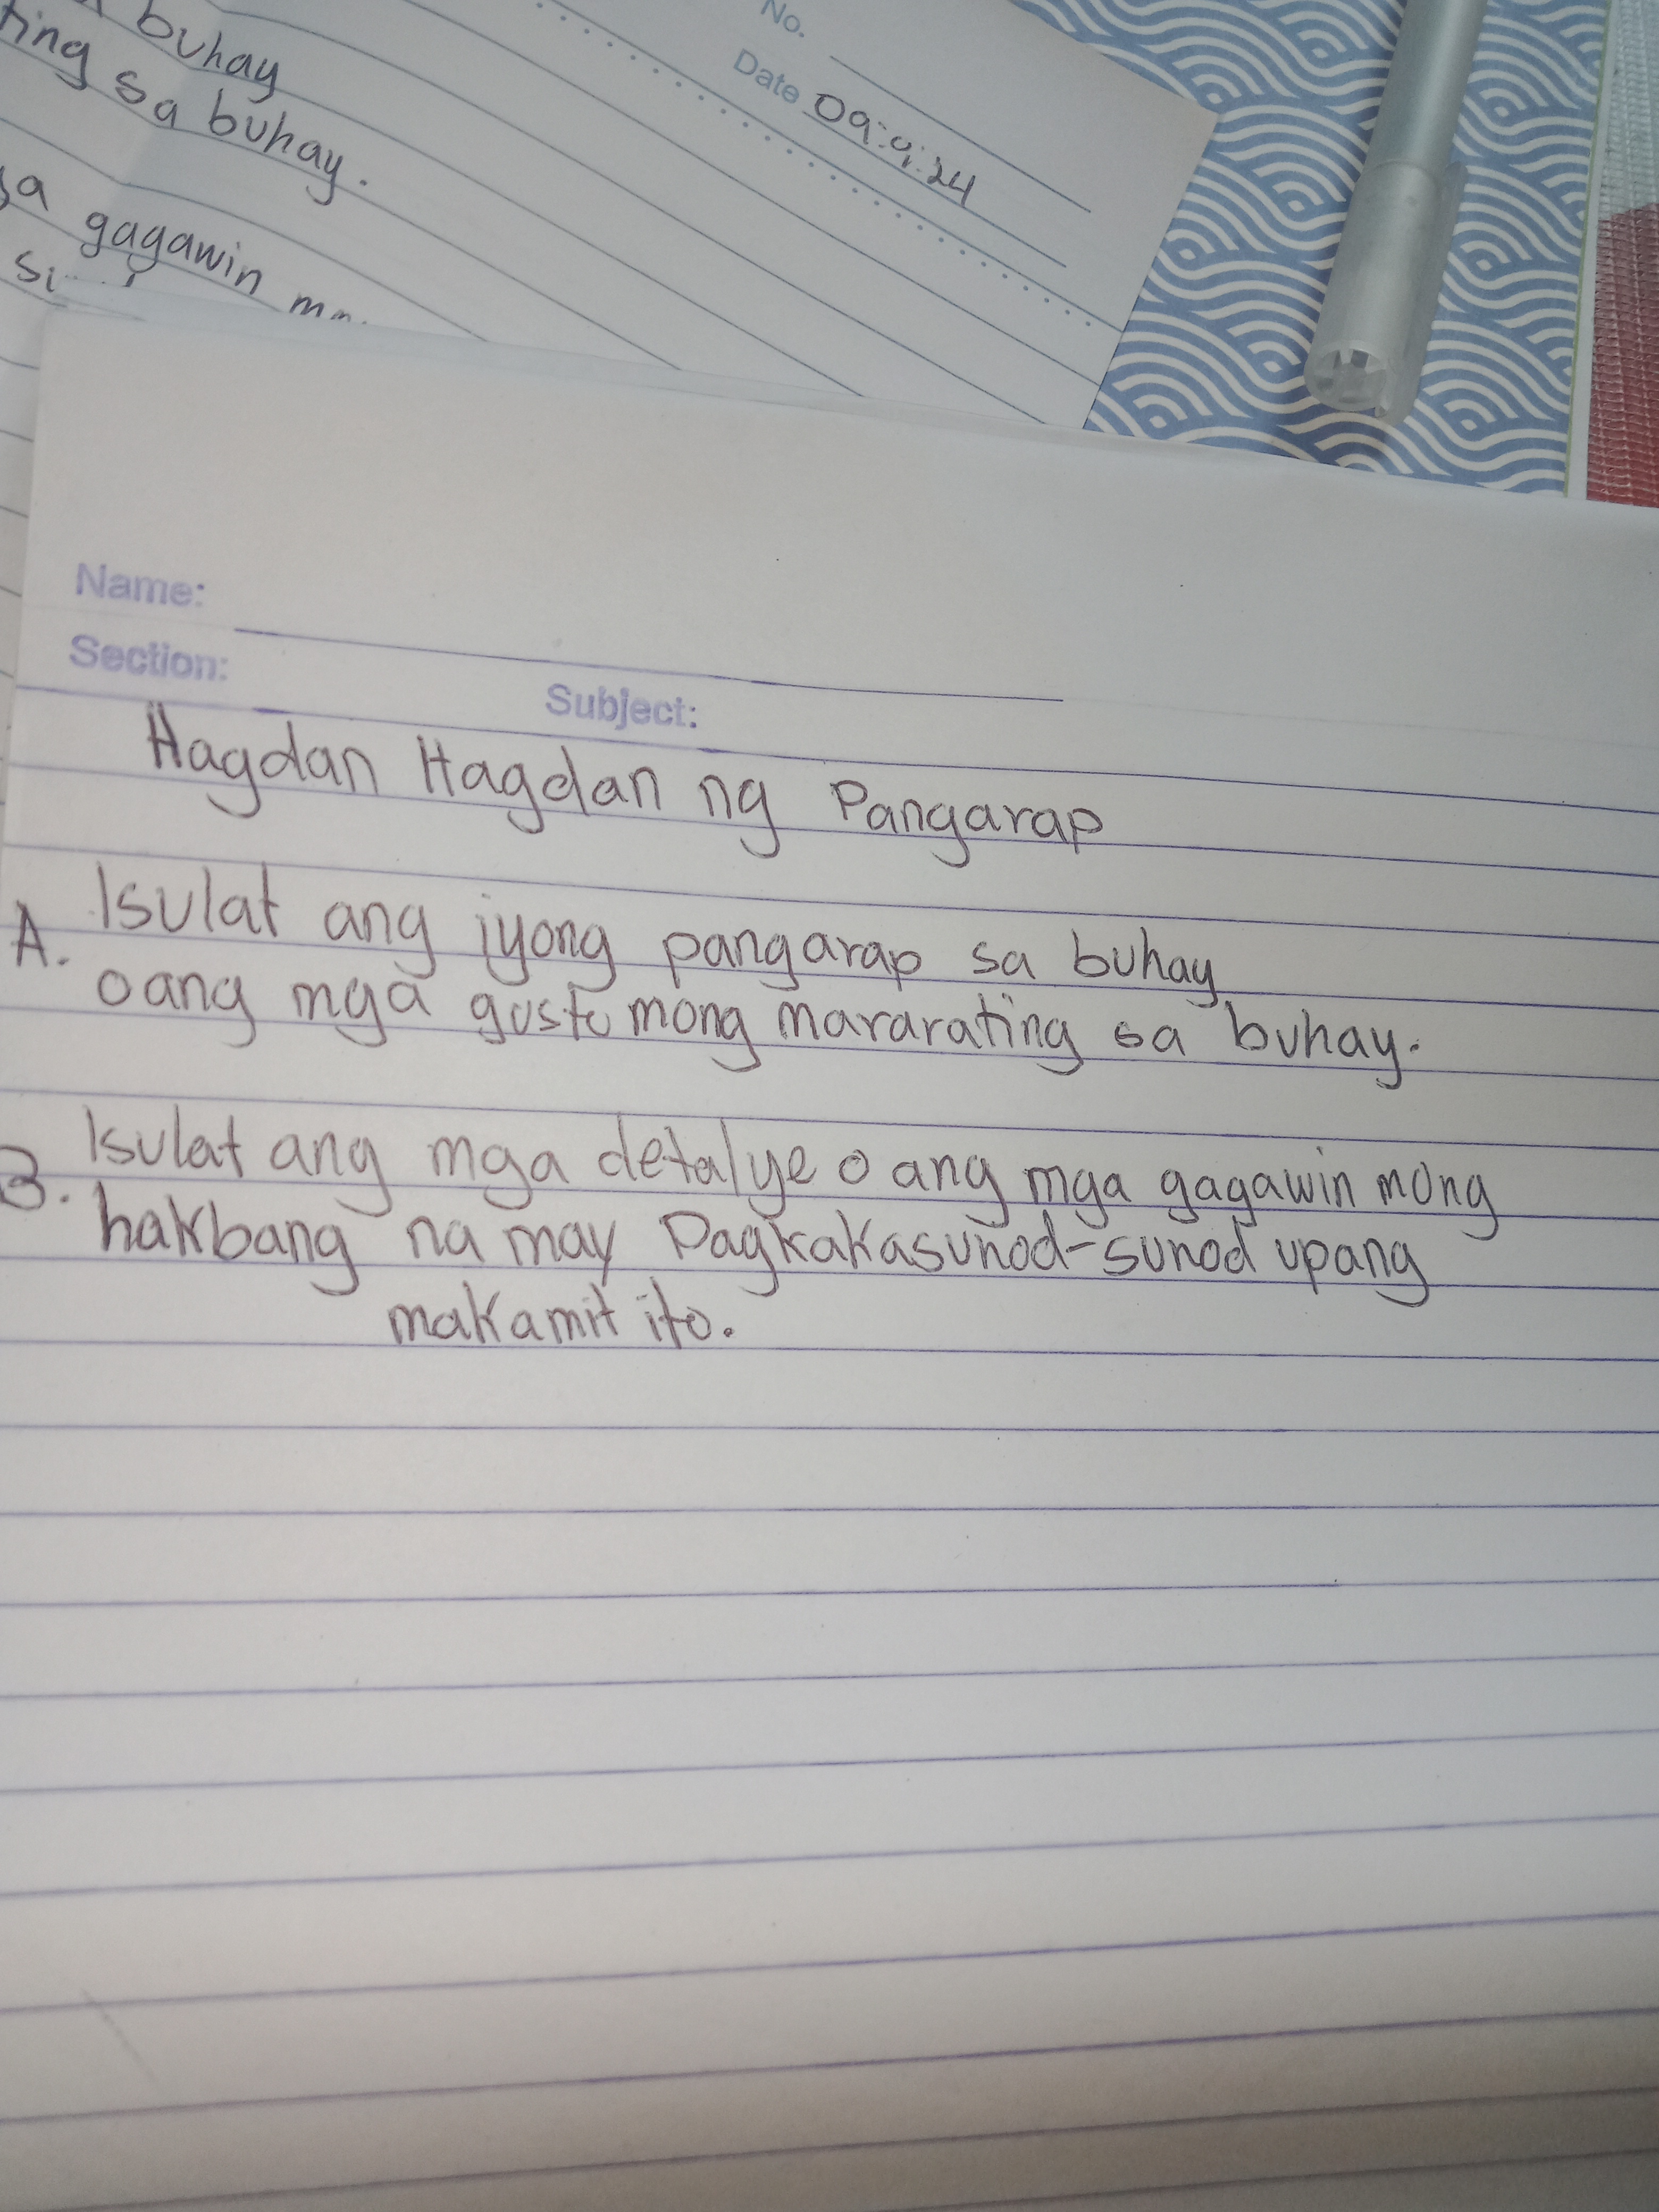 buhay
ting sa buhay.
gagawin
No.
Date 09.9.24
Name:
Section:
Subject:
Hagdan Hagdan ng Pangarap
A. Isulat ang iyong pangarap sa buhay
o ang mga gusto mong mararating sa buhay.
B. Isulat ang mga detalye o ang mga gagawin mong
hakbang na may Pagkakasunod-sunod upang
makamit ito.